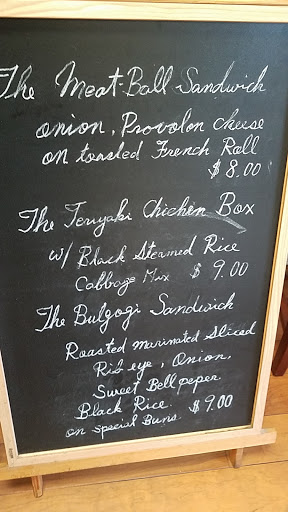 The Meat-Ball Sandwich
onion, Provolon cheese
on toasted French Rall
$8.00
The Teriyaki Chichen Box
w/ Black Steamed Rice
Cabbage Mix $9.00
The Bulgogi Sandwich
Roasted marinated sliced
Rib eye, Onion,
Sweet Bell peper
Black Rice. $9.00
on special Buns.